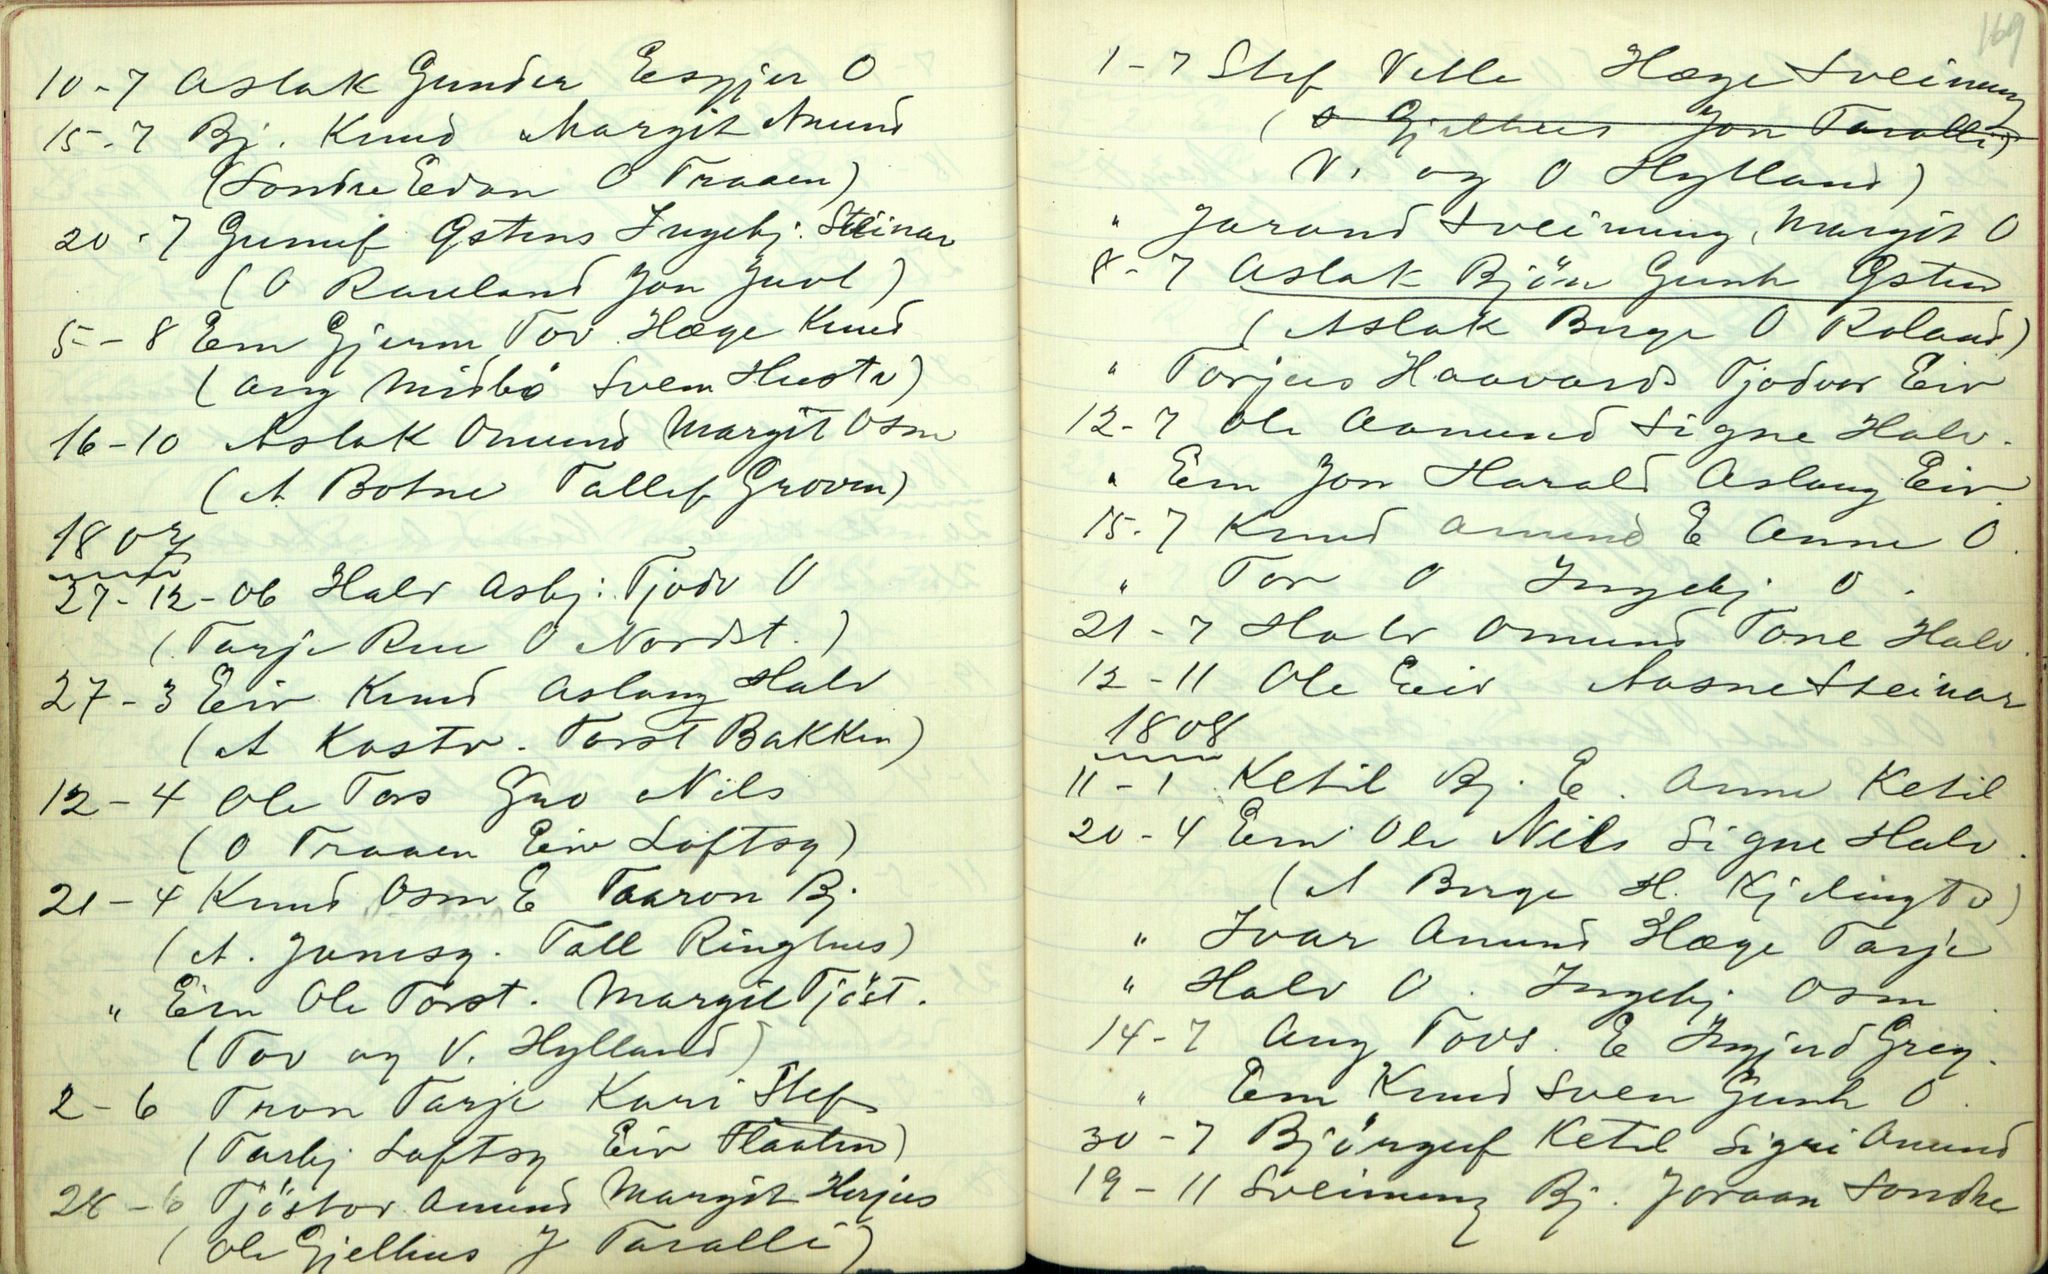 10-7 Aslak Gunder Esgjer O
15-7 Bj. Knud Margit Anund
(Sondre Edan O Traaen)
20-7 Gunuf Østens Ingebj. Steinar
(O Rauland Jon Juvl)
5-8 Em Gjerm Tov Hæge Knud
(Ang Midbö Sven Hustv)
16-10 Aslak Omund Margit Osm
(A Botne Tallef Groven)
1807
27-12-06 Halv Asbj: Tjodv O
(Tarje Rue O Nordst.)
27-3 Eiv Knud Aslaug Halv
(A Kostv. Torst Bakken)
12-4 Ole Tors Gro Nils
(O Traaen Eiv Loftsg)
21-4 Knud Osm E Taaron Bj
(A. Jamsg. Tall Ringhus)
" Em Ole Torst. Margit Tjöst.
(Tov og V. Hylland)
2-6 Tron Tarje Kari Stef
(Tarbj Loftsg Eiv Flaaten)
28-6 Tjöstov Anund Margit Herjus
(Ole Gjelhus J Taralli)
169
1-7 Stef Vetle Hæge Sveinung
(O Gjelhus Jon Taralli)
V. og O Hylland)
" Jorand Sveinung, Margit O
8-7 Aslak Björn Gunh Østen
(Aslak Berge O Roland)
" Torjus Haavards Tjodvor Eiv
12-7 Ole Aamund Signe Halv.
" Em Jon Harald Aslaug Eiv.
15-7 Knud Amund E Anne O.
" Tor O Ingebj O.
21-7 Halv Omund Tone Halv.
12-11 Ole Eiv Aasne Steinar
1808
11-1 Ketil Bj. E. Anne Ketil
20-4 Em Ole Nils Signe Halv.
(A Berge H.
" Ivar Anund Hæge Tarje
" Halv O. Ingebj Osm.
14-7 Ang Tovs. E Ingjerd Greg.
" Em Knud Sven Gunh O.
30-7 Björguf Ketil Sigri Anund
19-11 Sveinung Bj. Joraan Sondre